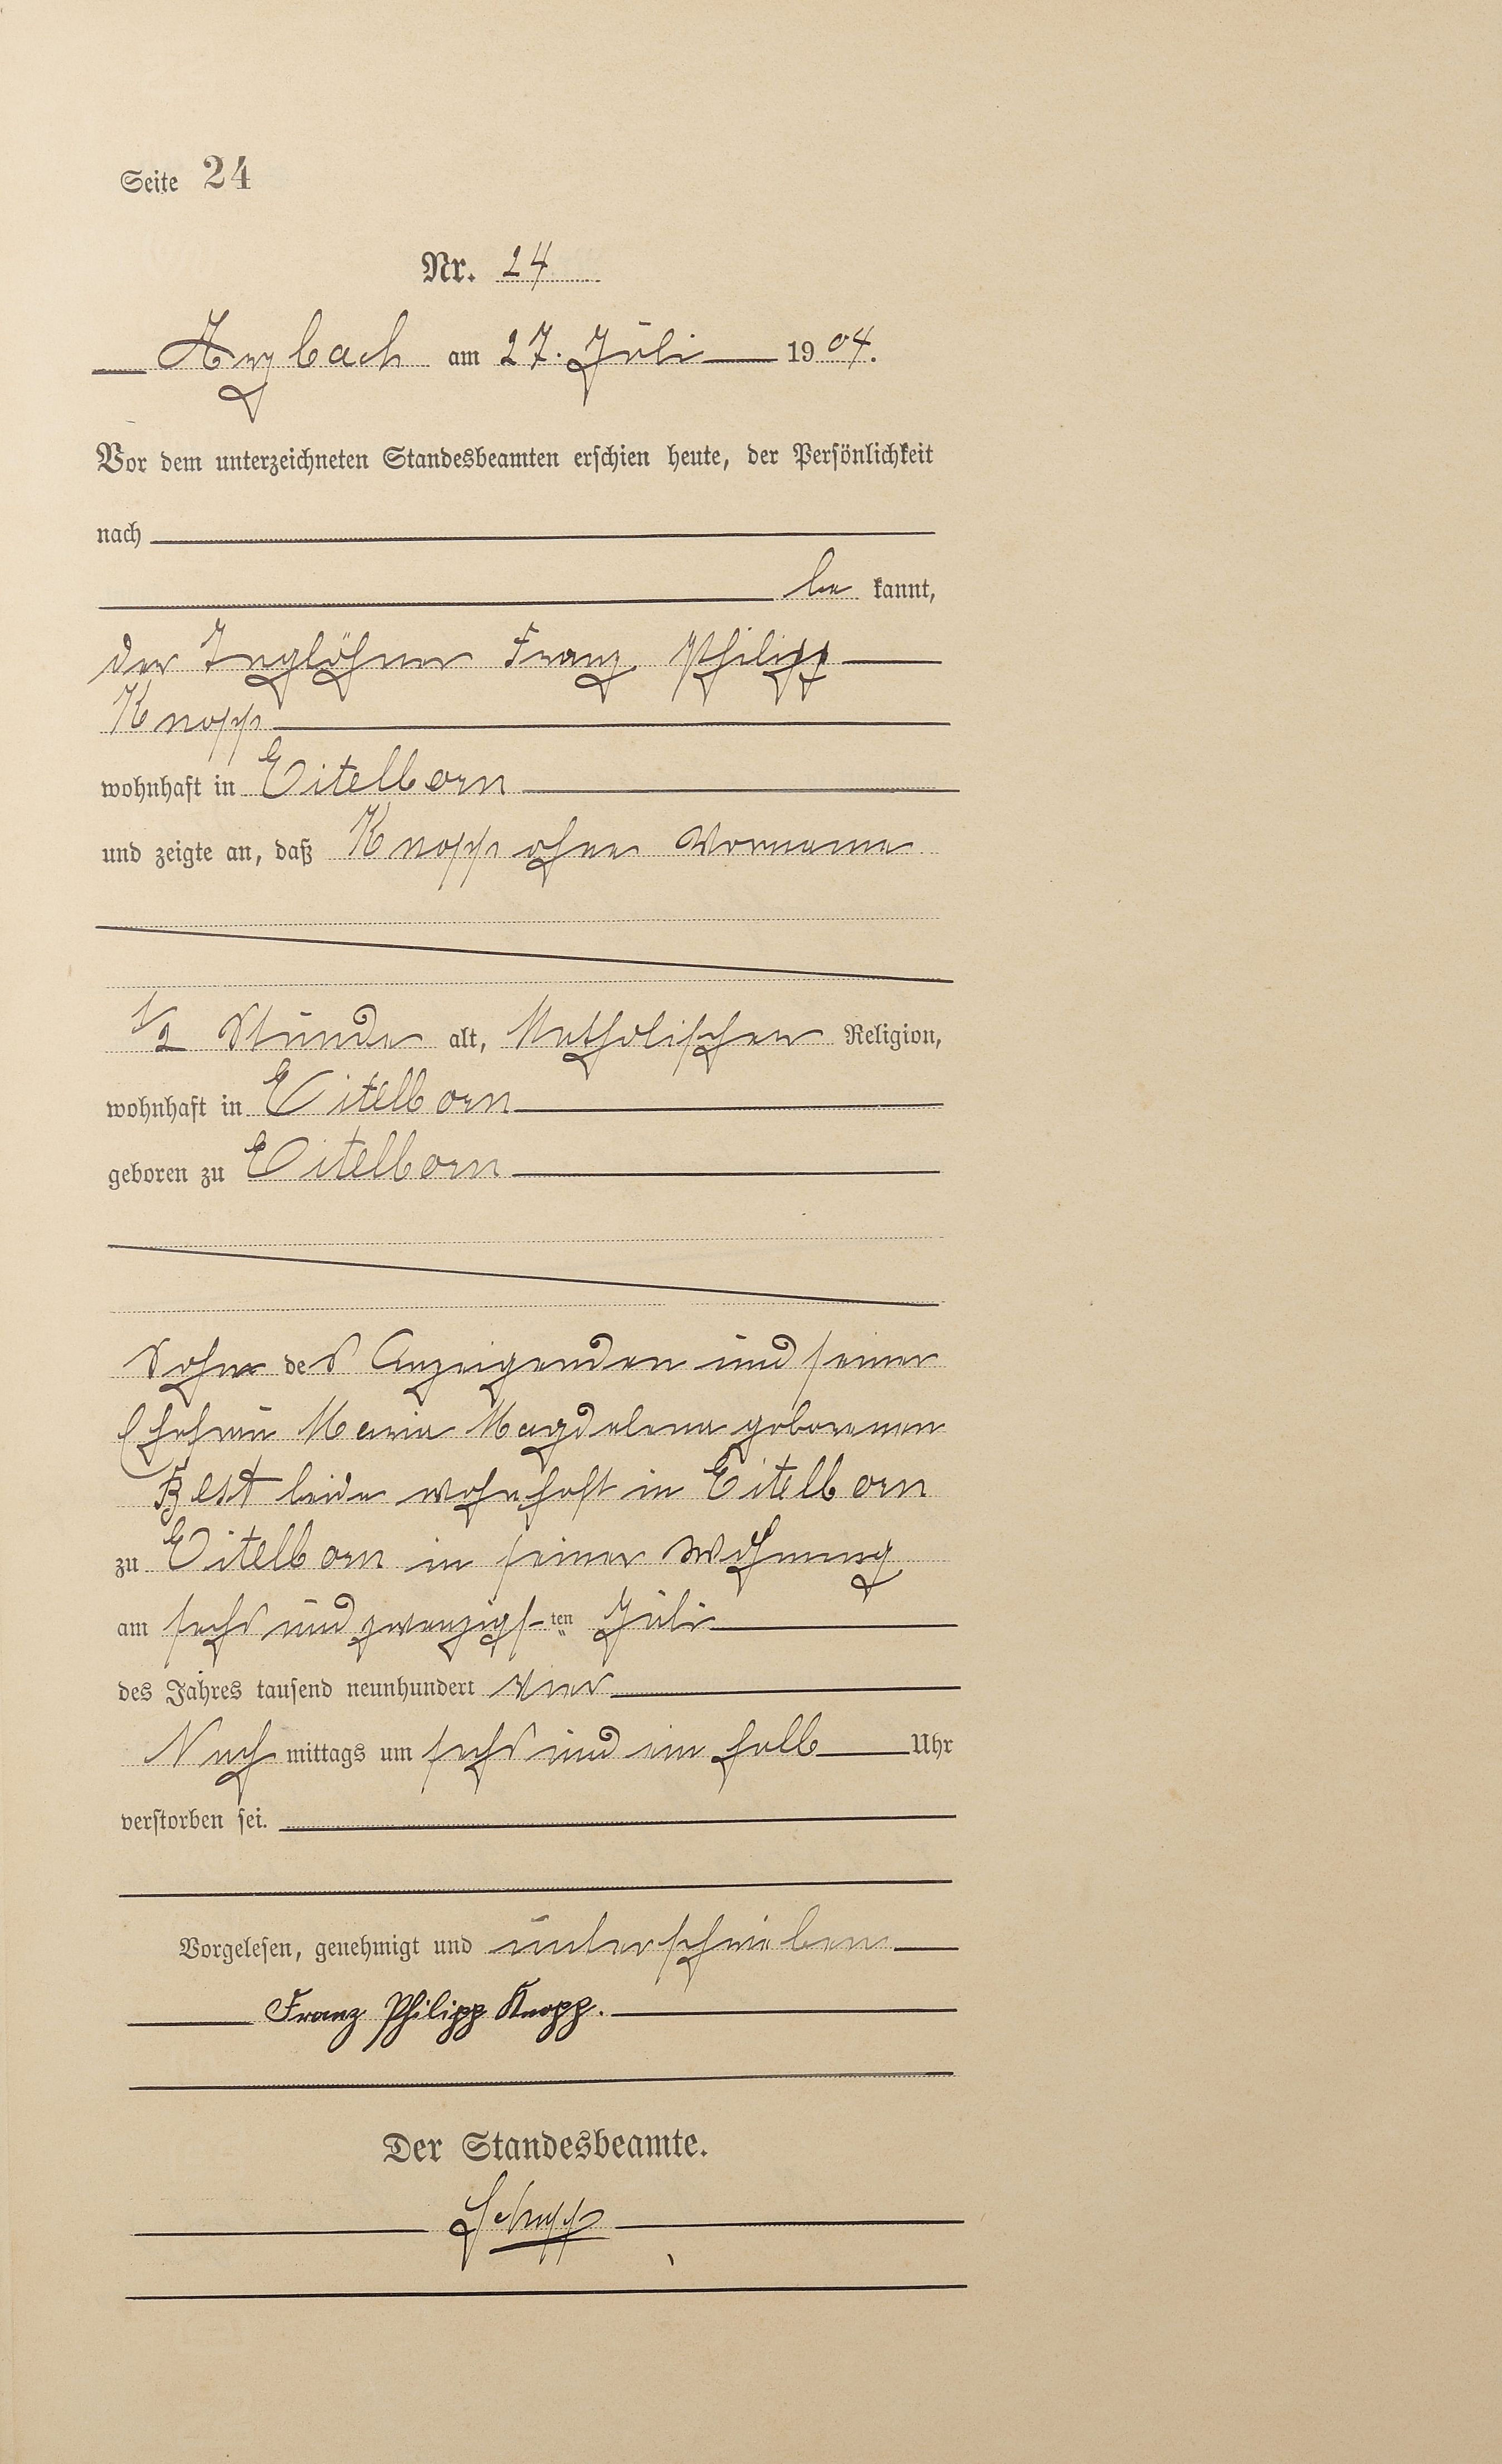 Seite 24
Nr. 24
Arzbach am 27. Juli 1904.
Vor dem unterzeichneten Standesbeamten erschien heute, der Persönlichkeit
nach
be kannt,
der Taglöhner Franz Philipp
Knopp
wohnhaft in Eitelborn
und zeigte an, daß Knopp ohne Vorname
1/2 Stunde alt, Katholischer Religion,
wohnhaft in Eitelborn
geboren zu Eitelborn
Sohn des Anzeigenden und seiner
Ehefrau Maria Magdalena geborenen
Best beide wohnhaft in Eitelborn
zu Eitelborn in seiner Wohnung
am sechs und zwanzigsten Juli
des Jahres tausend neunhundert vier
Nach mittags um sechs und ein halb Uhr
verstorben sei.
Vorgelesen, genehmigt und unterschrieben
Franz Philipp Knopp.
Der Standesbeamte.